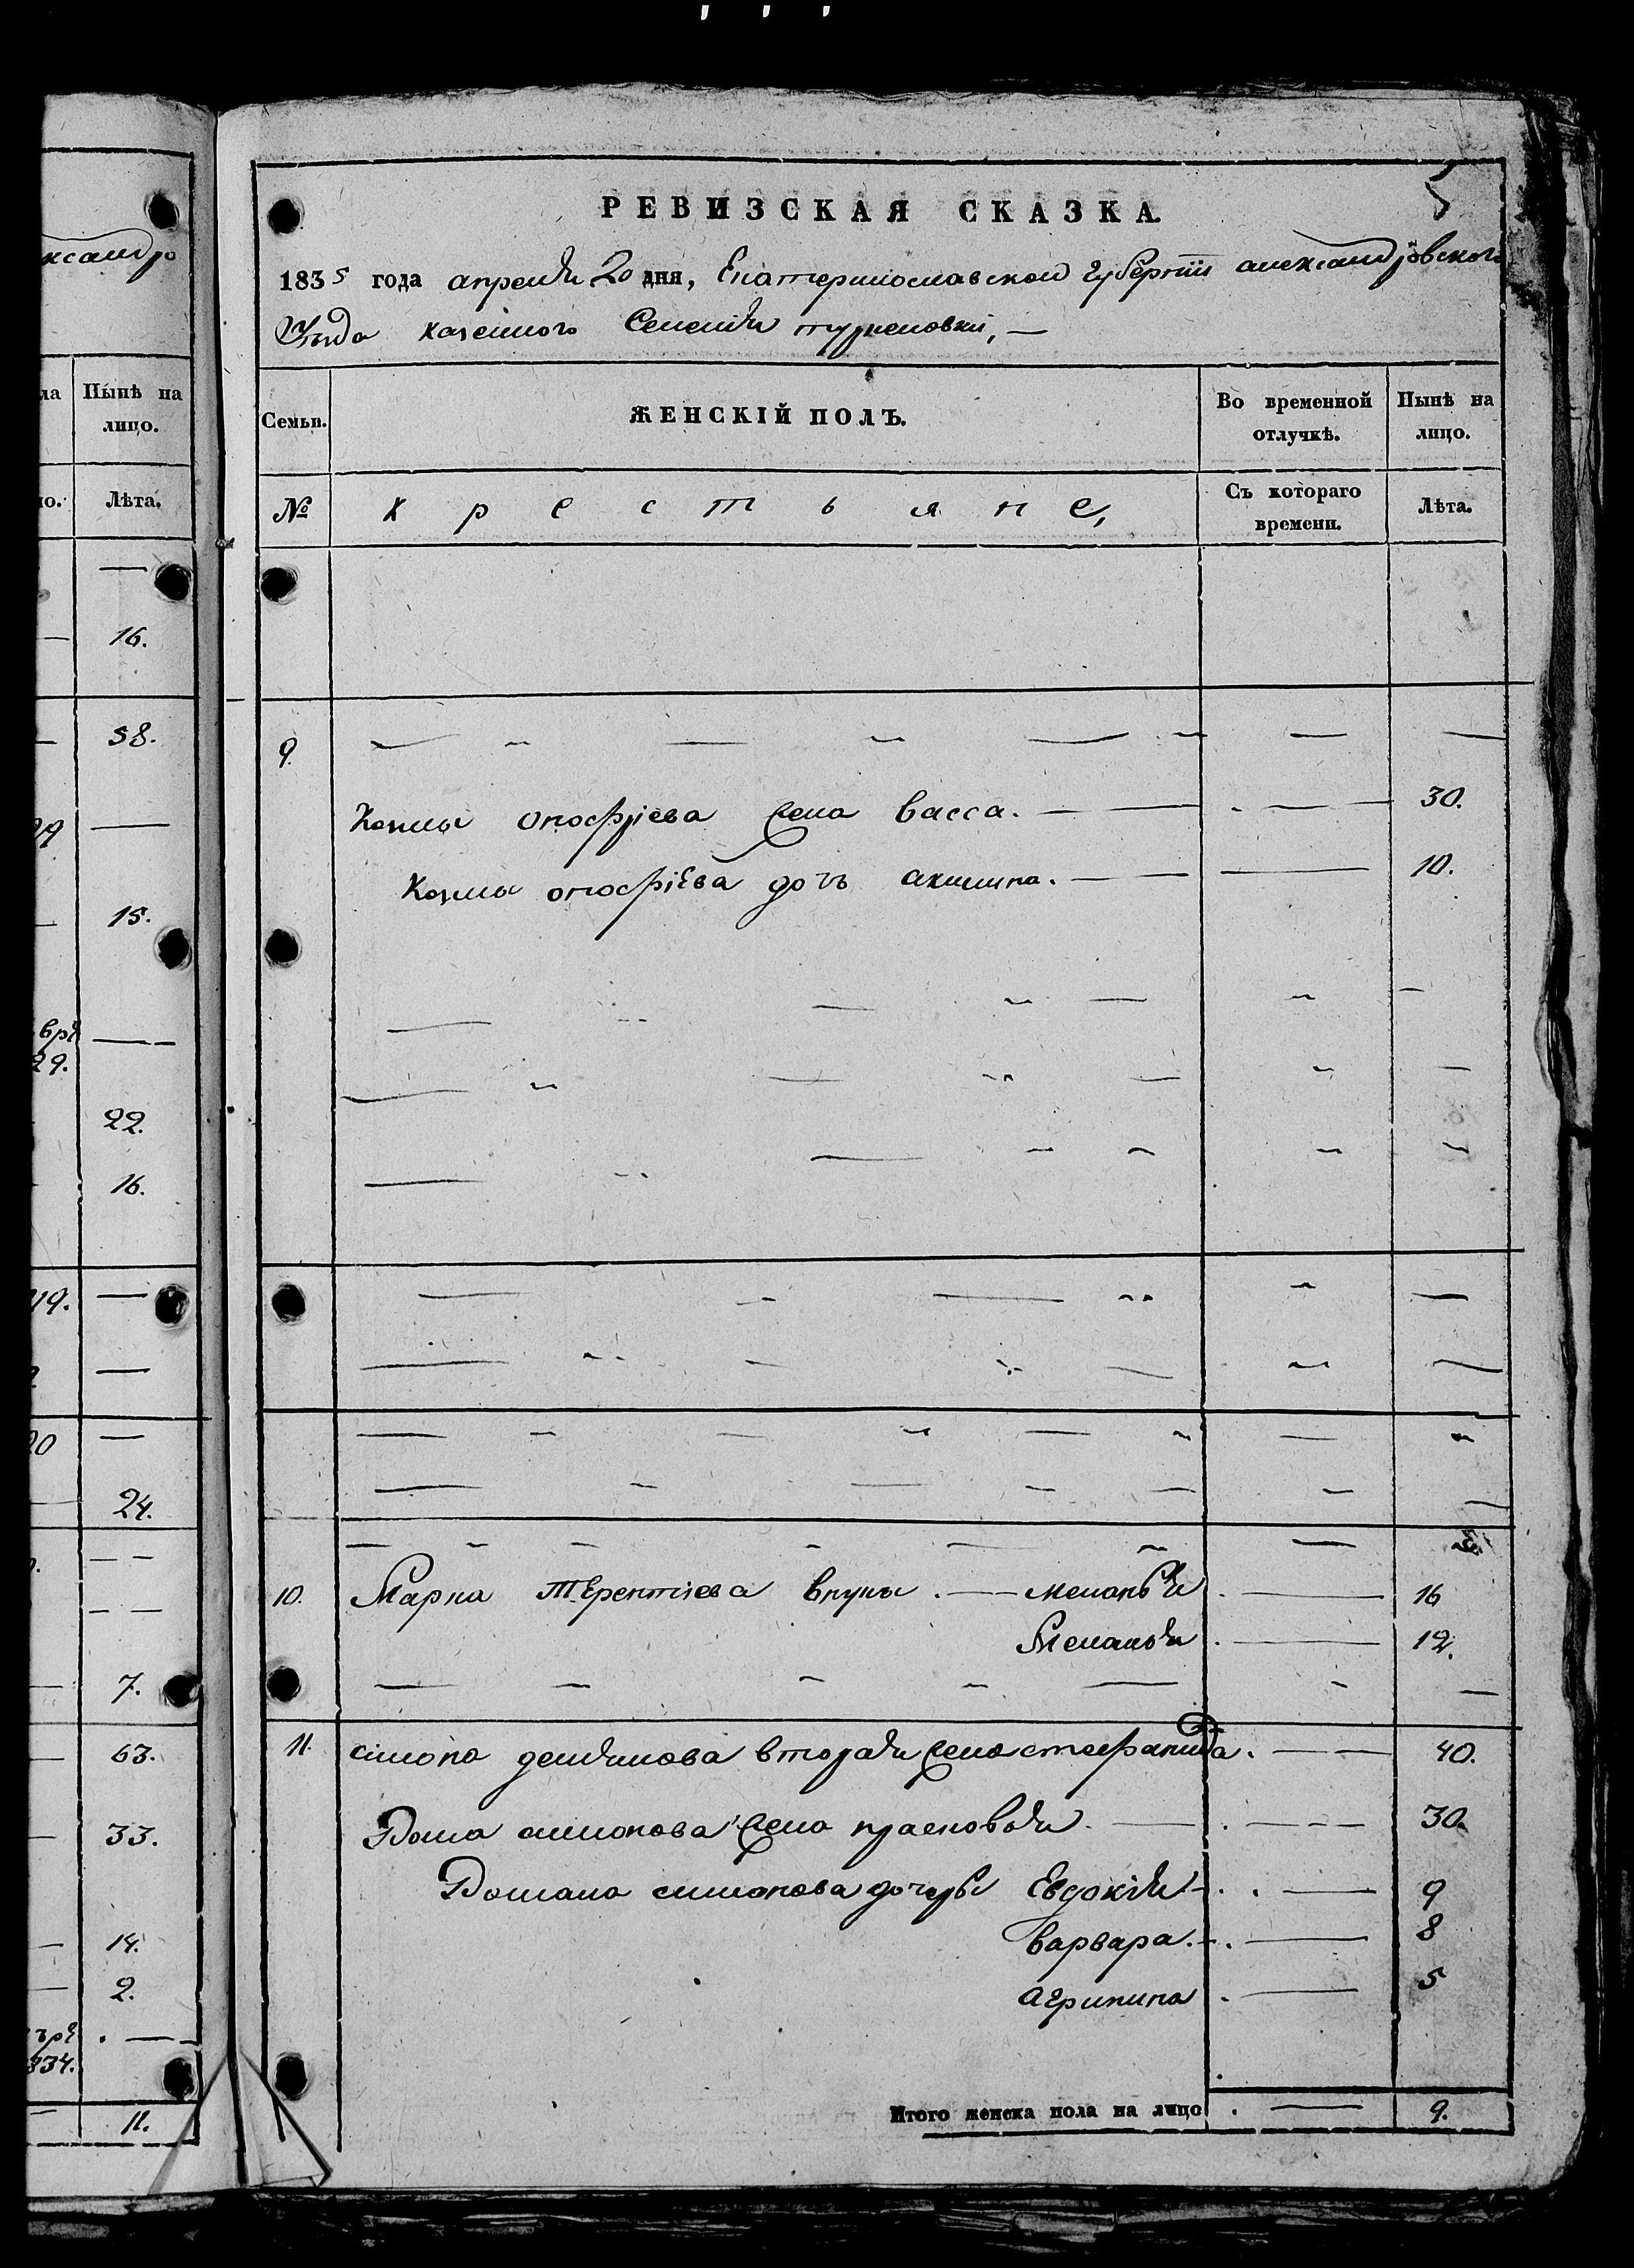 ксандр
ла
Нынѣ на
лицо.
ло.
Лѣта.
—
16.
58.
29
—
15.
врѣ
29.
—
22.
16.
19.
—
—
20
—
24.
— —
— —
7.
63.
33.
14.
2.
334.
11.
5
РЕВИЗСКАЯ СКАЗКА.
1835 года апреля 20 дня, Екатеринославской губернiи александровского
Уѣзда казенного Селенiя туркеновки, —
Семьи. ЖЕНСКIЙ ПОЛЪ. Во временной отлучкѣ. Нынѣ на лицо.
№ крестьяне, Съ котораго времени. Лѣта.
9
Козмы онофрiева жена васса. — 30.
Козмы онофрiева дочь акилина. — 10.
10. Марка Терентiева внуки. — меланья — 16
Меланья — 12.
11. симона демьянова вторая жена стефанида. — 40.
Рома симонова жена прасковья — 30.
Романа симонова дочеры Евдокiя — 9
варвара. — 8
агрипина — 5
Итого женска пола на лицо — 9.